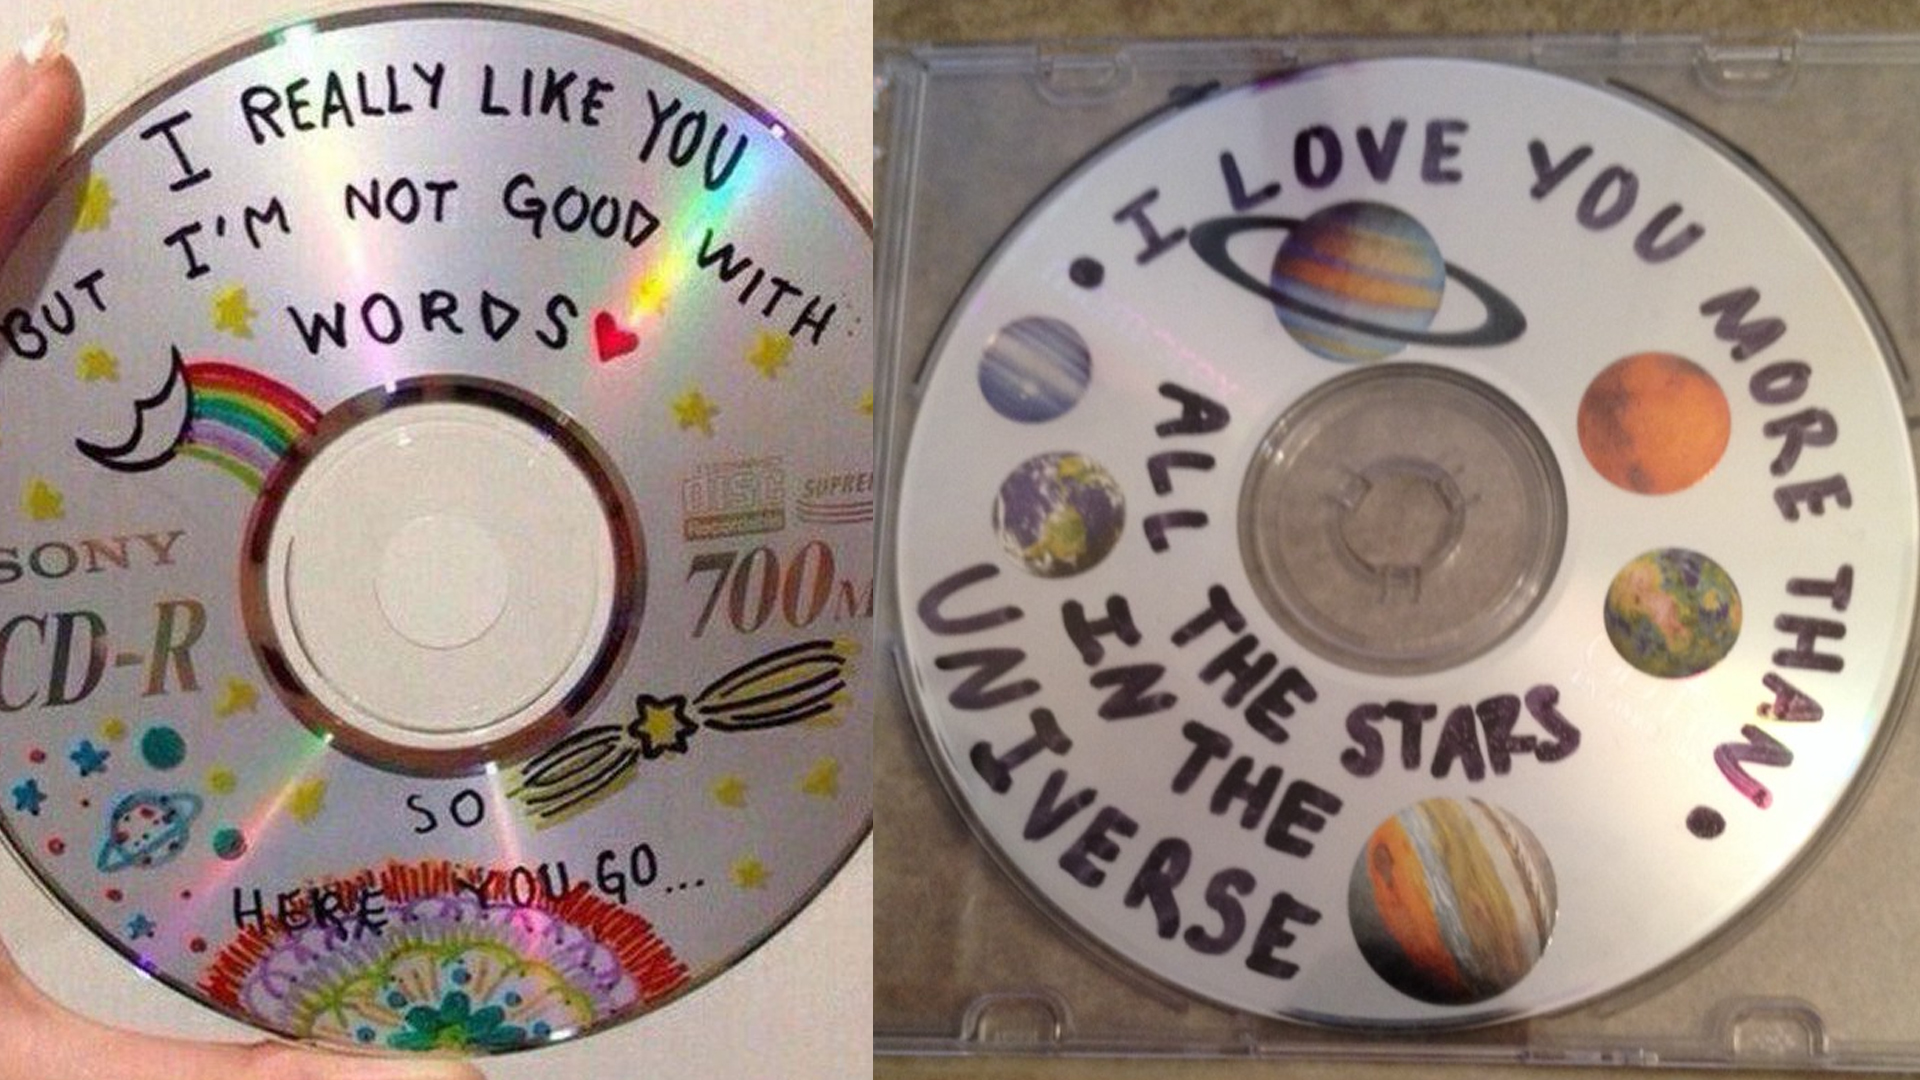 I REALLY LIKE YOU
BUT I'M NOT GOOD WITH
WORDS
SONY
CD-R
disc
Recordable
700
SO
HERE YOU GO...
• I LOVE YOU MORE THAN •
ALL THE STARS
IN THE
UNIVERSE